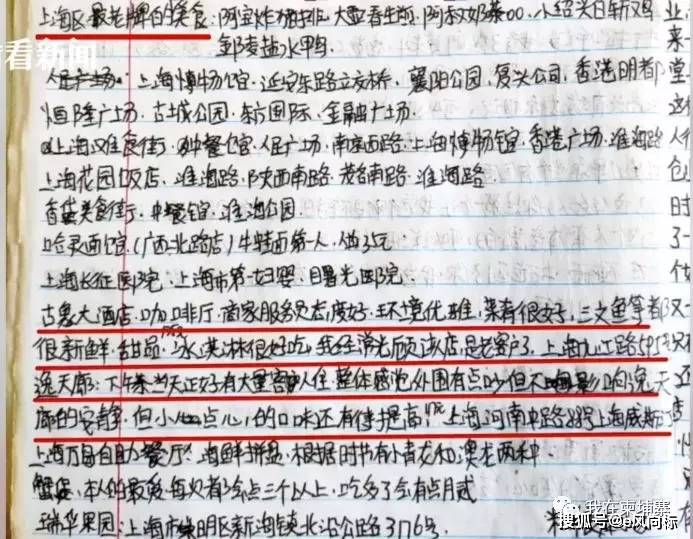 看看新闻
上海区最老牌的美食：阿宝炸猪排、大壶春生煎、阿叔奶茶00、小绍兴白斩鸡
邹凌盐水鸭
人民广场、上海博物馆、延安东路立交桥、襄阳公园、复兴公司、香港明都
恒隆广场、古城公园、东方国际、金融广场
上海汉食街、种餐馆、人民广场、南京西路、上海博物馆、香港广场、淮海路
上海花园饭店、淮海路、陕西南路、茂名南路、淮海路
美食街、中餐馆、淮海公园
哈灵面馆（广西北路店）牛蛙面第一人
上海长征医院、上海市第一妇婴、曙光医院
古象大酒店、咖啡厅、商家服务员态度好、环境优雅、菜肴很好、三文鱼等都
很新鲜、甜品、冰淇淋很好吃，我经常光顾该店，是老客户了，上海九江路595号
逸天廊：下午茶当天正好有大量客人住，整体感觉外围有点吵但不影响逸天
廊的安静，但小点心的口味还有待提高，上海河南中路
上海万自助餐厅：海鲜拼盘，根据时节有小青龙和澳龙两种
蟹，本人的最爱，每次都会点三个以上，吃多了会有点月贰
瑞华果园：上海市崇明区新海镇北沿公路3176号
业
来
堂
人
仓
时
了一
我在柬埔寨
搜狐号@风向标